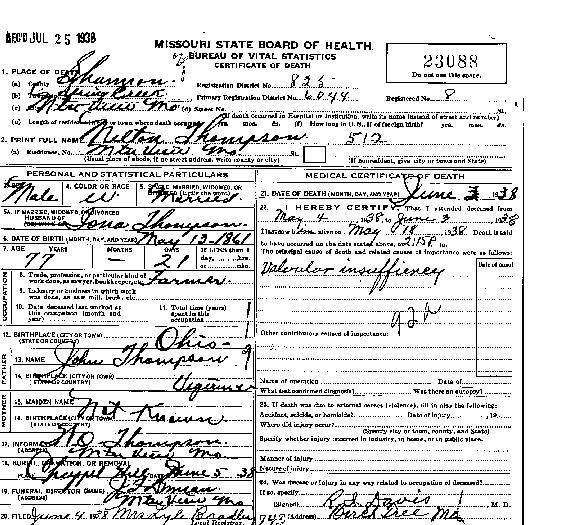 REC'D JUL 25 1938
MISSOURI STATE BOARD OF HEALTH
BUREAU OF VITAL STATISTICS
CERTIFICATE OF DEATH
23088
Do not use this space.
1. PLACE OF DEATH
(a) County Shannon Registration District No. 825
(b) Township Spring Creek Primary Registration District No. 6044 Registered No. 8
(c) City Mtn View Mo (d) Street No. St.
(If death occurred in Hospital or Institution, write its name instead of street and number)
(e) Length of residence in city or town where death occurred yrs. mos. ds. (f) How long in U. S. if of foreign birth? yrs. mos. ds.
2. PRINT FULL NAME Thompson 512
(a) Residence, No. Mtn View Mo St.
(Usual place of abode, if no street address, write county or city) (If nonresident, give city or town and State)
PERSONAL AND STATISTICAL PARTICULARS
3. SEX Male 4. COLOR OR RACE W 5. SINGLE, MARRIED, WIDOWED, OR DIVORCED (write the word) Married
5A. IF MARRIED, WIDOWED, OR DIVORCED
HUSBAND OF Iona Thompson
6. DATE OF BIRTH (MONTH, DAY, AND YEAR) May 13-1861
7. AGE YEARS 77 MONTHS — DAYS 21 If LESS than 1 day, hrs.
OCCUPATION
8. Trade, profession, or particular kind of work done, as sawyer, bookkeeper, etc. Farmer
9. Industry or business in which work was done, as saw mill, bank, etc.
10. Date deceased last worked at this occupation (month and year) 11. Total time (years) spent in this occupation
12. BIRTHPLACE (CITY OR TOWN) (STATE OR COUNTRY) Ohio
FATHER
13. NAME John Thompson 9
14. BIRTHPLACE (CITY OR TOWN) (STATE OR COUNTRY) Virginia
MOTHER
15. MAIDEN NAME Not Known
16. BIRTHPLACE (CITY OR TOWN) (STATE OR COUNTRY)
17. INFORMANT Thompson
(ADDRESS) Mtn View Mo
18. BURIAL, CREMATION, OR REMOVAL
Chappel Hill June 5 38
19. FUNERAL DIRECTOR (NAME)
(ADDRESS) Mtn View Mo
20. FILED June 4 1938 Mrs Lyle Bradley
MEDICAL CERTIFICATE OF DEATH
21. DATE OF DEATH (MONTH, DAY, AND YEAR) June 3 1938
22. I HEREBY CERTIFY, That I attended deceased from
May 4 1938 to June 3 1938
I last saw alive on May 18 1938 Death is said
to have occurred on the date stated above, at m.
The principal cause of death and related causes of importance were as follows:
Date of onset
Valvular insufficiency
92a
Other contributory causes of importance:
Name of operation Date of
What test confirmed diagnosis? Was there an autopsy?
23. If death was due to external causes (violence), fill in also the following:
Accident, suicide, or homicide? Date of injury , 19
Where did injury occur?
(Specify city or town, county, and State)
Specify whether injury occurred in industry, in home, or in public place.
Manner of injury
Nature of injury
24. Was disease or injury in any way related to occupation of deceased?
If so, specify
(Signed) R. S. Davis M. D.
Birch Tree Mo